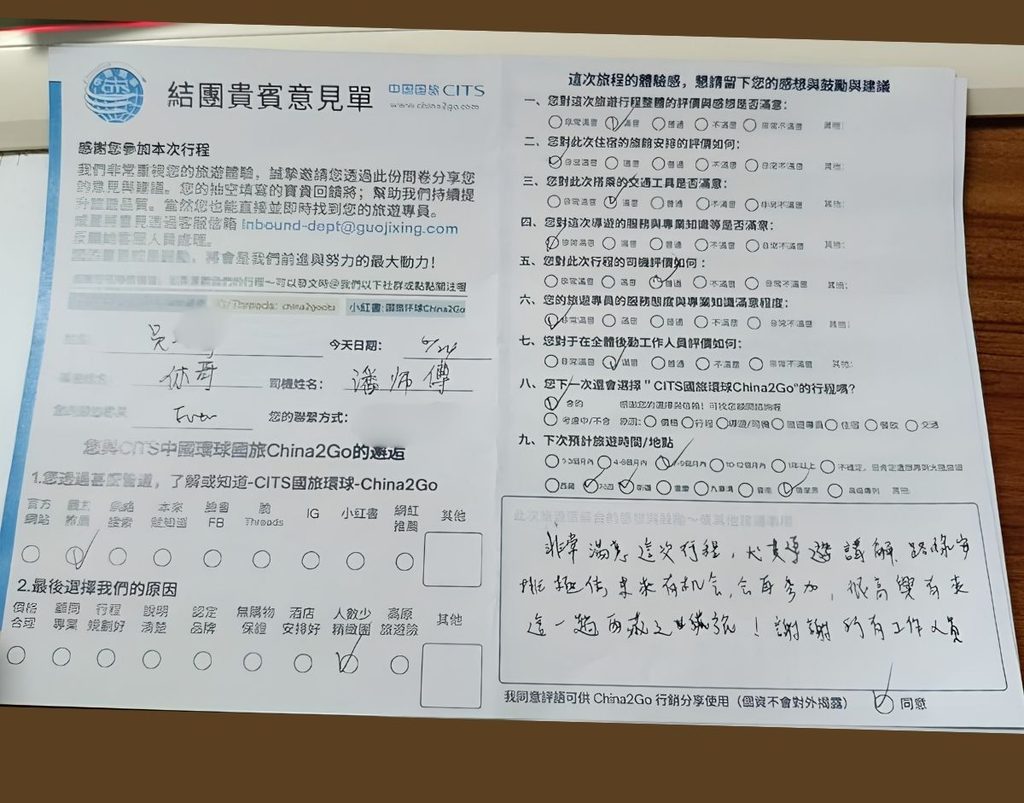 結團貴賓意見單
中國国旅CITS
www.china2go.com
感謝您參加本次行程
我們非常重視您的旅遊體驗，誠摯邀請您透過此份問卷分享您
的意見與建議。您的抽空填寫的寶貴回饋將；幫助我們持續提
升體品質。當然您也能直接並即時找到您的旅遊專員。
意見透過客服信箱 Inbound-dept@guojixing.com
人員處理。
將會是我們前進與努力的最大動力！
可以發文時@我們以下社群或點點關注喔
Threads: china2gocits 小紅書: 國旅环球China2Go
吳 今天日期： 6/24
休哥 司機姓名： 潘师傅
Ever 您的聯繫方式：
您與CITS中國環球國旅China2Go的邂逅
1.您透過甚麼管道，了解或知道-CITS國旅環球-China2Go
官方網站 親友推薦 網路搜索 本來就知道 臉書FB 脆Threads IG 小紅書 網紅推薦 其他
2.最後選擇我們的原因
價格合理 顧問專業 行程規劃好 說明清楚 認定品牌 無購物保證 酒店安排好 人數少精緻團 高原旅遊險 其他
這次旅程的體驗感，懇請留下您的感想與鼓勵與建議
一、您對這次旅遊行程整體的評價與感想是否滿意：
非常滿意 滿意 普通 不滿意 非常不滿意 其他：
二、您對此次住宿的旅館安排的評價如何：
非常滿意 滿意 普通 不滿意 非常不滿意 其他：
三、您對此次搭乘的交通工具是否滿意：
非常滿意 滿意 普通 不滿意 非常不滿意 其他：
四、您對這次導遊的服務與專業知識等是否滿意：
非常滿意 滿意 普通 不滿意 非常不滿意 其他：
五、您對此次行程的司機評價如何：
非常滿意 滿意 普通 不滿意 非常不滿意 其他：
六、您的旅遊專員的服務態度與專業知識滿意程度：
非常滿意 滿意 普通 不滿意 非常不滿意 其他：
七、您對于在全體後勤工作人員評價如何：
非常滿意 滿意 普通 不滿意 非常不滿意 其他：
八、您下一次還會選擇＂CITS國旅環球China2Go"的行程嗎?
會的 感謝您的選擇與信賴！
考慮中/不會 原因： 價格 行程 導遊/司機 旅遊專員 住宿 餐飲 交通
九、下次預計旅遊時間/地點
1-3個月內 4-6個月內 7-9個月內 10-12個月內 1年以上 不確定，
西藏 川西 新疆 雲南 其他：
非常滿意這次行程，尤其導遊講解、路線安
排極佳，未來有机会，会再參加，很高興有來
這一趟西藏之旅！謝謝所有工作人員
我同意評語可供 China2Go 行銷分享使用（個資不會對外揭露） 同意